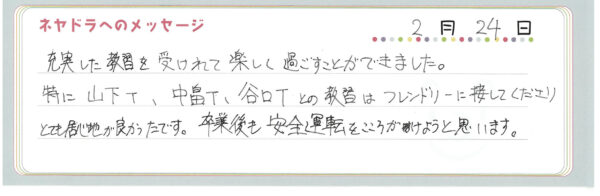 ネヤドラへのメッセージ
2月24日
充実した教習を受けれて楽しく過ごすことができました。
特に山下T、中畠T、谷口Tとの教習はフレンドリーに接してくださり
とても居心地が良かったです。卒業後も安全運転をこころがけようと思います。